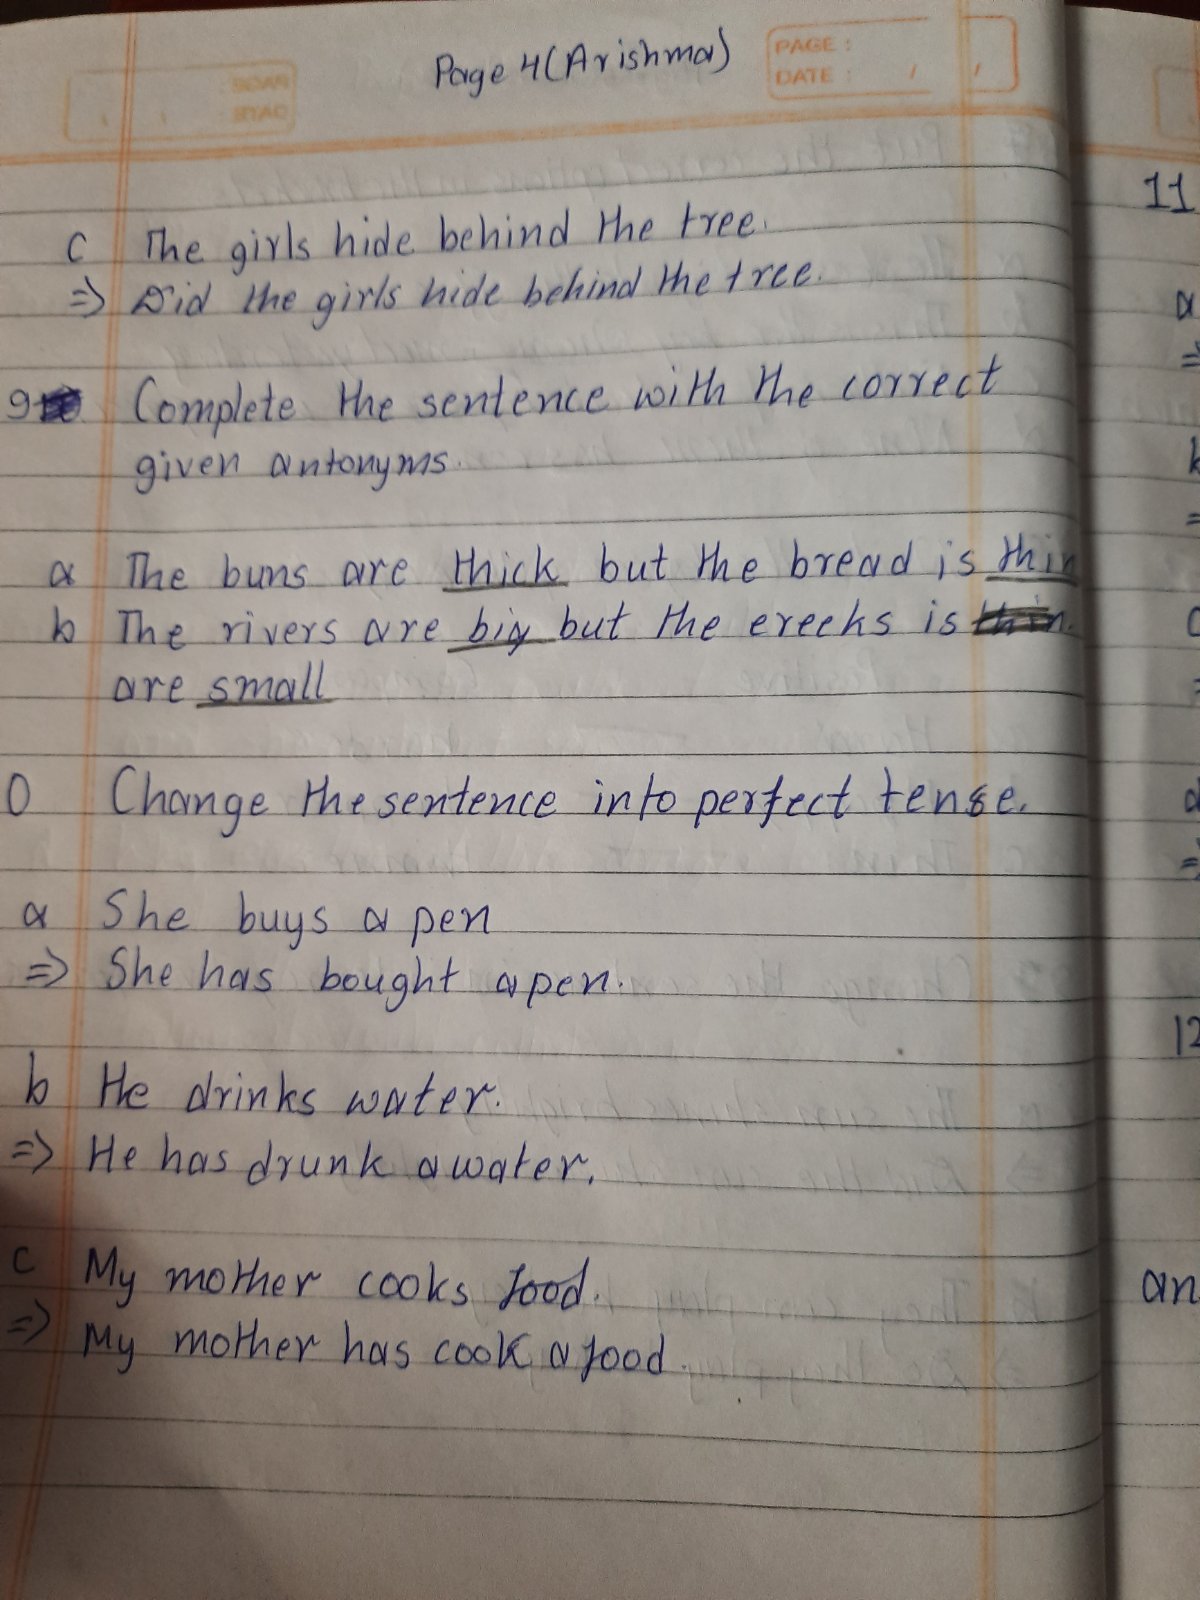 Page 4 (Arishma)
PAGE :
DATE : / /
11
c The girls hide behind the tree.
=> Did the girls hide behind the tree.
a
=>
9 Complete the sentence with the correct
given antonyms.
a The buns are thick but the bread is thin
b The rivers are big but the creeks is thin.
are small
0 Change the sentence into perfect tense.
a She buys a pen
=> She has bought a pen.
12
b He drinks water.
=> He has drunk a water.
c My mother cooks food.
an
=> My mother has cook a food.